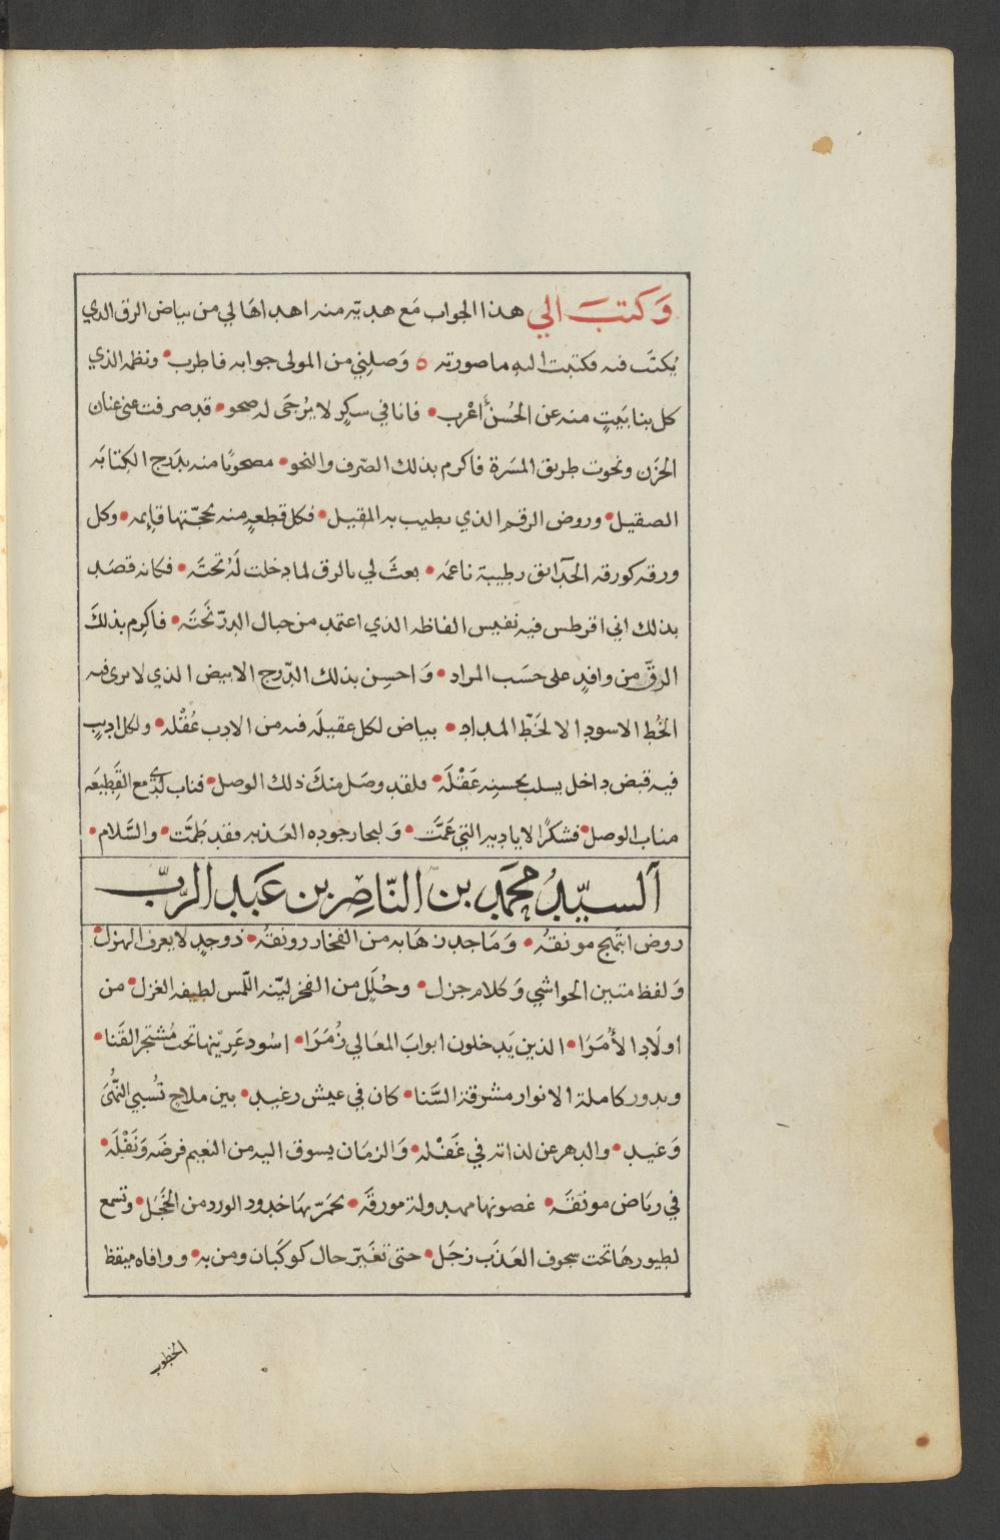 وَكتبَ الي هذا الجواب مَع هديّه منه اهداهَا لي من بياض الرق الذي
يُكتَب فيه فكتبت اليه ما صورته ه وَصلِني من المولى جوابه فاطرب • ونظمه الذي
كل بنا بَيتٍ منه عن الحُسنُ أعْرب • فانا في سكرٍ لا يُرجَى له صحو • قد صرفت عنى عنان
الحزَن ونحوت طريق المسَرة فاكرم بذلك الصّرف والنحو • مصحوبًا منه بدَرج الكتابَه
الصقيل • وروض الرقم الذي يطيب به المقيل • فكل قطعهٍ منه بحجّتها قايمه • وكل
ورقه كورقه الحدَآئق رطيبة ناعمَه • بعثَ لي بالرق لما دخلت لَهُ تحتَه • فكانه قصَد
بذلك اني اقرطس فيه نفيس الفاظه الذي اعتمد من جبال الدرّ نَحتَه • فاكرِم بذلكَ
الرقّ من وافدٍ على حسَب المراد • وَاحسِن بذلك الدّرج الابيض الذي لا يرى فيه
الخُط الاسود الا لخَطّ المداد • بياض لكل عقيلَه فيه من الادب عُقْله • ولكل اديبٍ
فيه قبض داخل يسلب بحسنِه عَقْلَه • ولقد وصَل منكَ ذلك الوصل • فناب لدَيّ مع القَطِيعَه
مناب الوصل • فشكرًا لاياديه التي عَمّتَ • وَلبحار جوده العَذبه فقد طَمّتَ • والسَّلام •
اَلسيّدُ محمَد بن النّاصِر بن عَبَد الرَّبّ
روض ابتَهج مونقهُ • وَمَاجد زهَا به من الفخار رونقهُ • ذو جدٍ لا يعرف الهزل •
وَلفظ متين الحواشي وَكلام جزل • وحُلَل من الفخر ليّنه اللّمس لطيفه الغزل • من
اولَاد الأُمَرَا • الذين يَدخلون ابوابَ المعَالي زُمَرَا • اسُود عَرِينها تحت مُشتجر القَنا •
وبدور كاملة الانوار مشرقة السَّنا • كان في عيش رغيد • بين ملاحٍ تُسبي النُّهىَ
وَغيد • والدهر عن لذاته في غَفْله • وَالزمَان يسوق اليه من النعيم فرضَه وَنَفْلَه •
في ريَاض مونقَه • غصونها مهدولة مورقَه • يحمَرّ بهَا خدود الورد من الخَجَل • وتسمع
لطيورهَا تحت سجوف العَذَب زجَل • حتى تغَيّر حال كوكَبان ومن به • ووافاه ميقظ
الخطوب